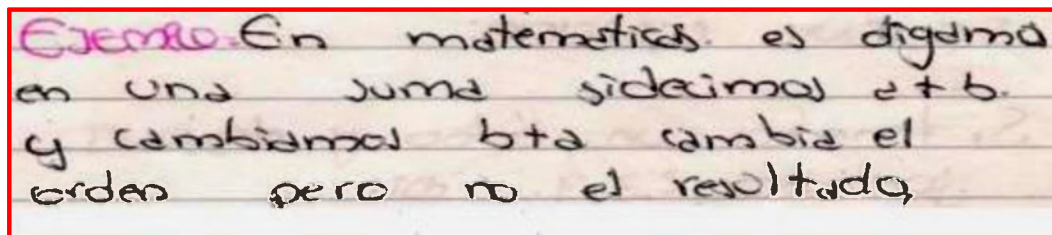 EJEMPLO: En matematicas. es digamos
en una suma si decimos a + b.
y cambiamos b+a cambia el
orden pero no el resultado,